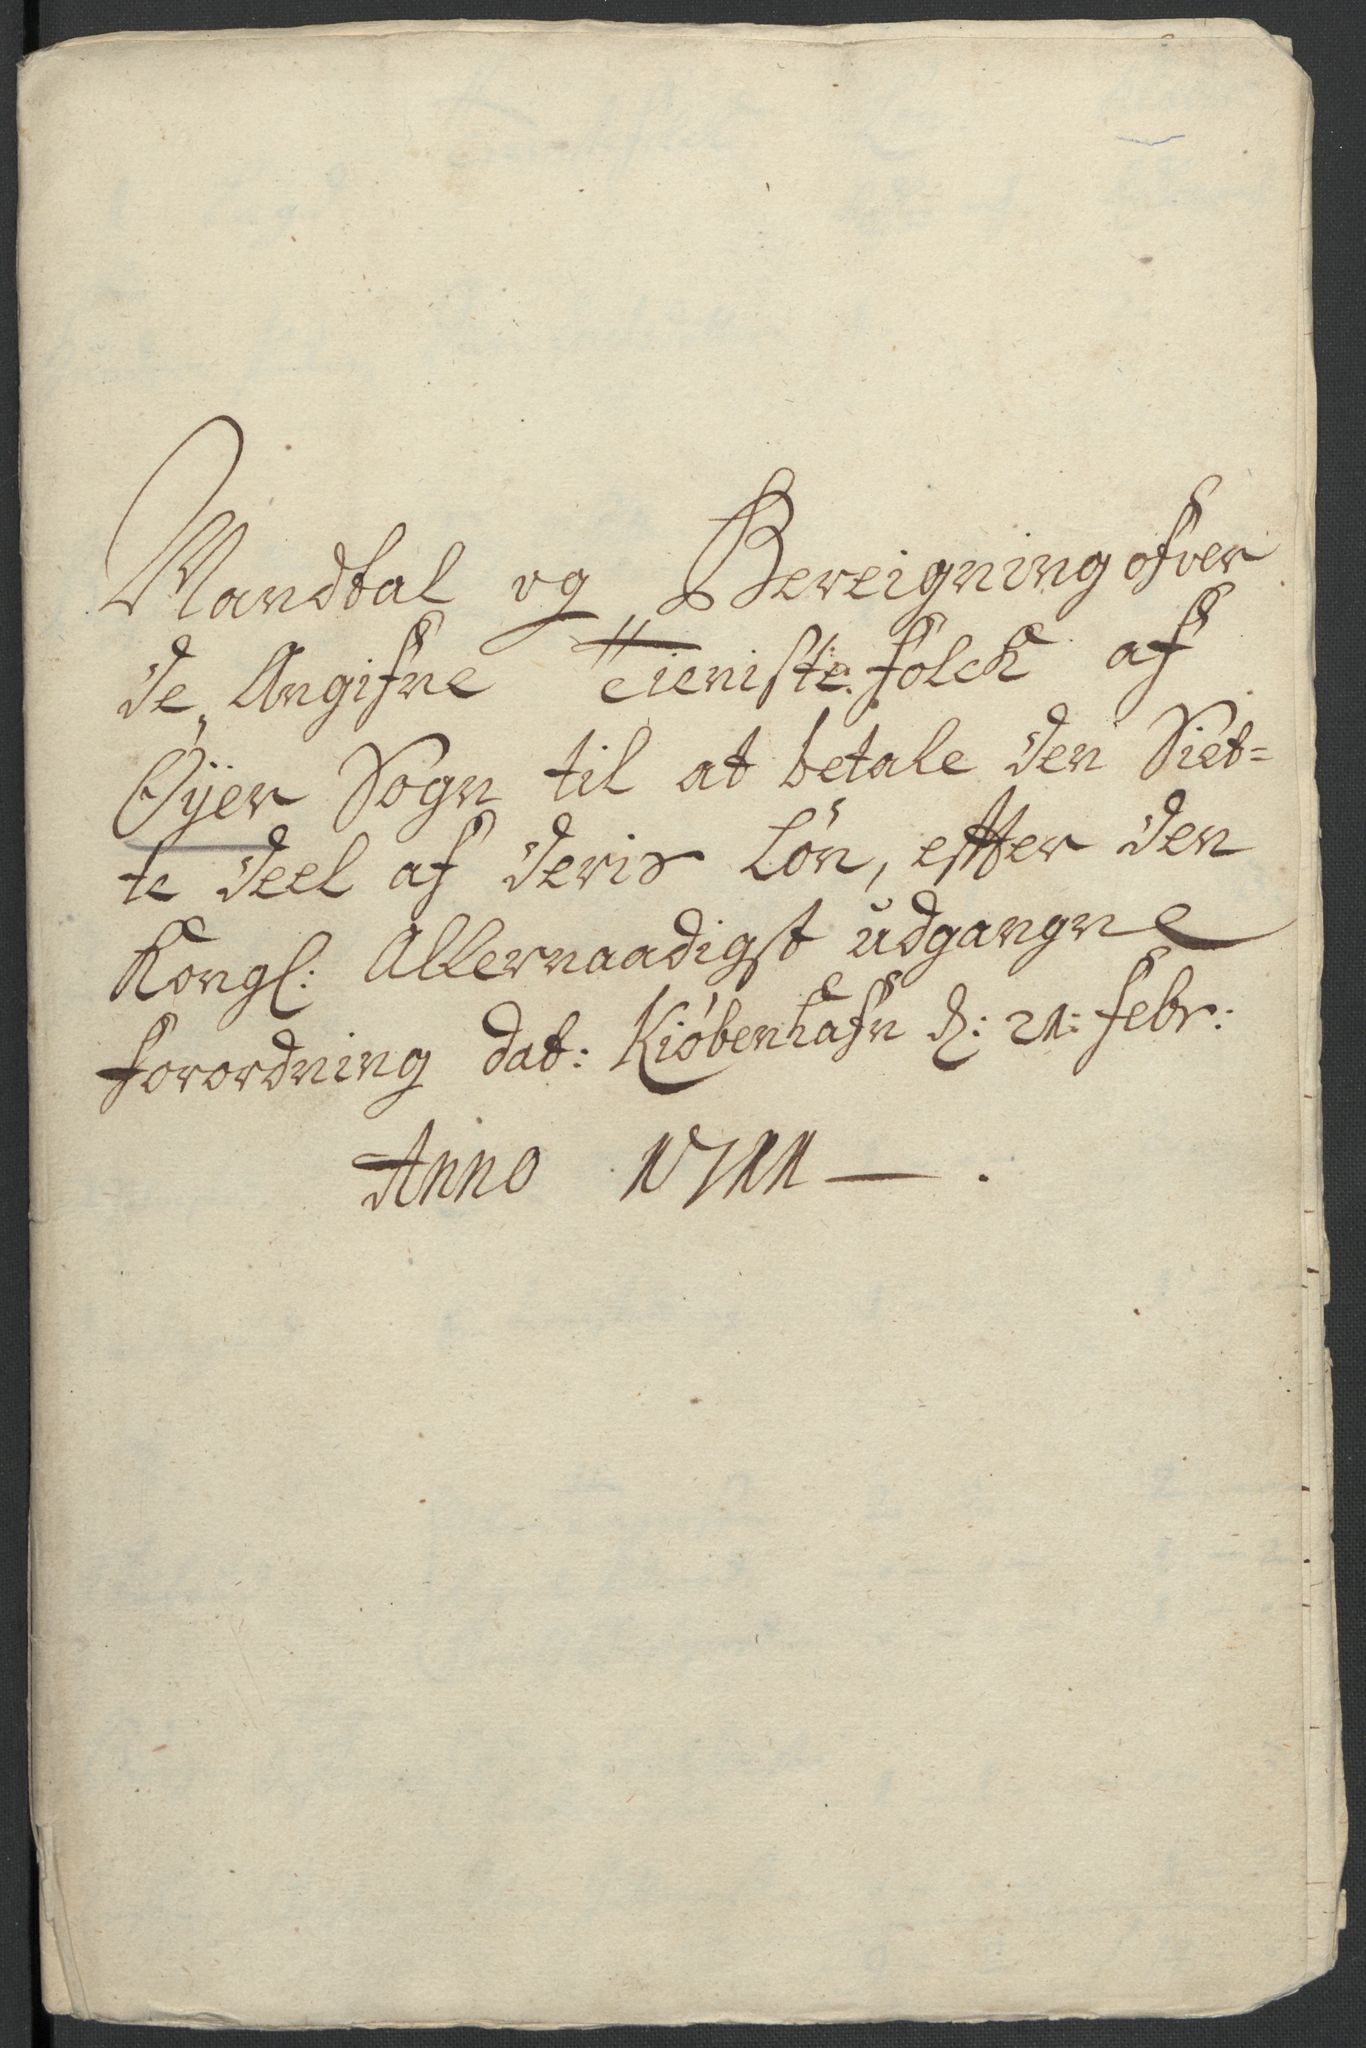 Mandtal og Bereigning ofver
de Angifne Tieniste folck af
Øÿer Sogn til at betale den Siet=
te deel af deris Lön, effter den
Kongl: Allernaadigst udgangne
forordning dat: Kiöbenhafn d: 21: febr:
Anno 1711 — .